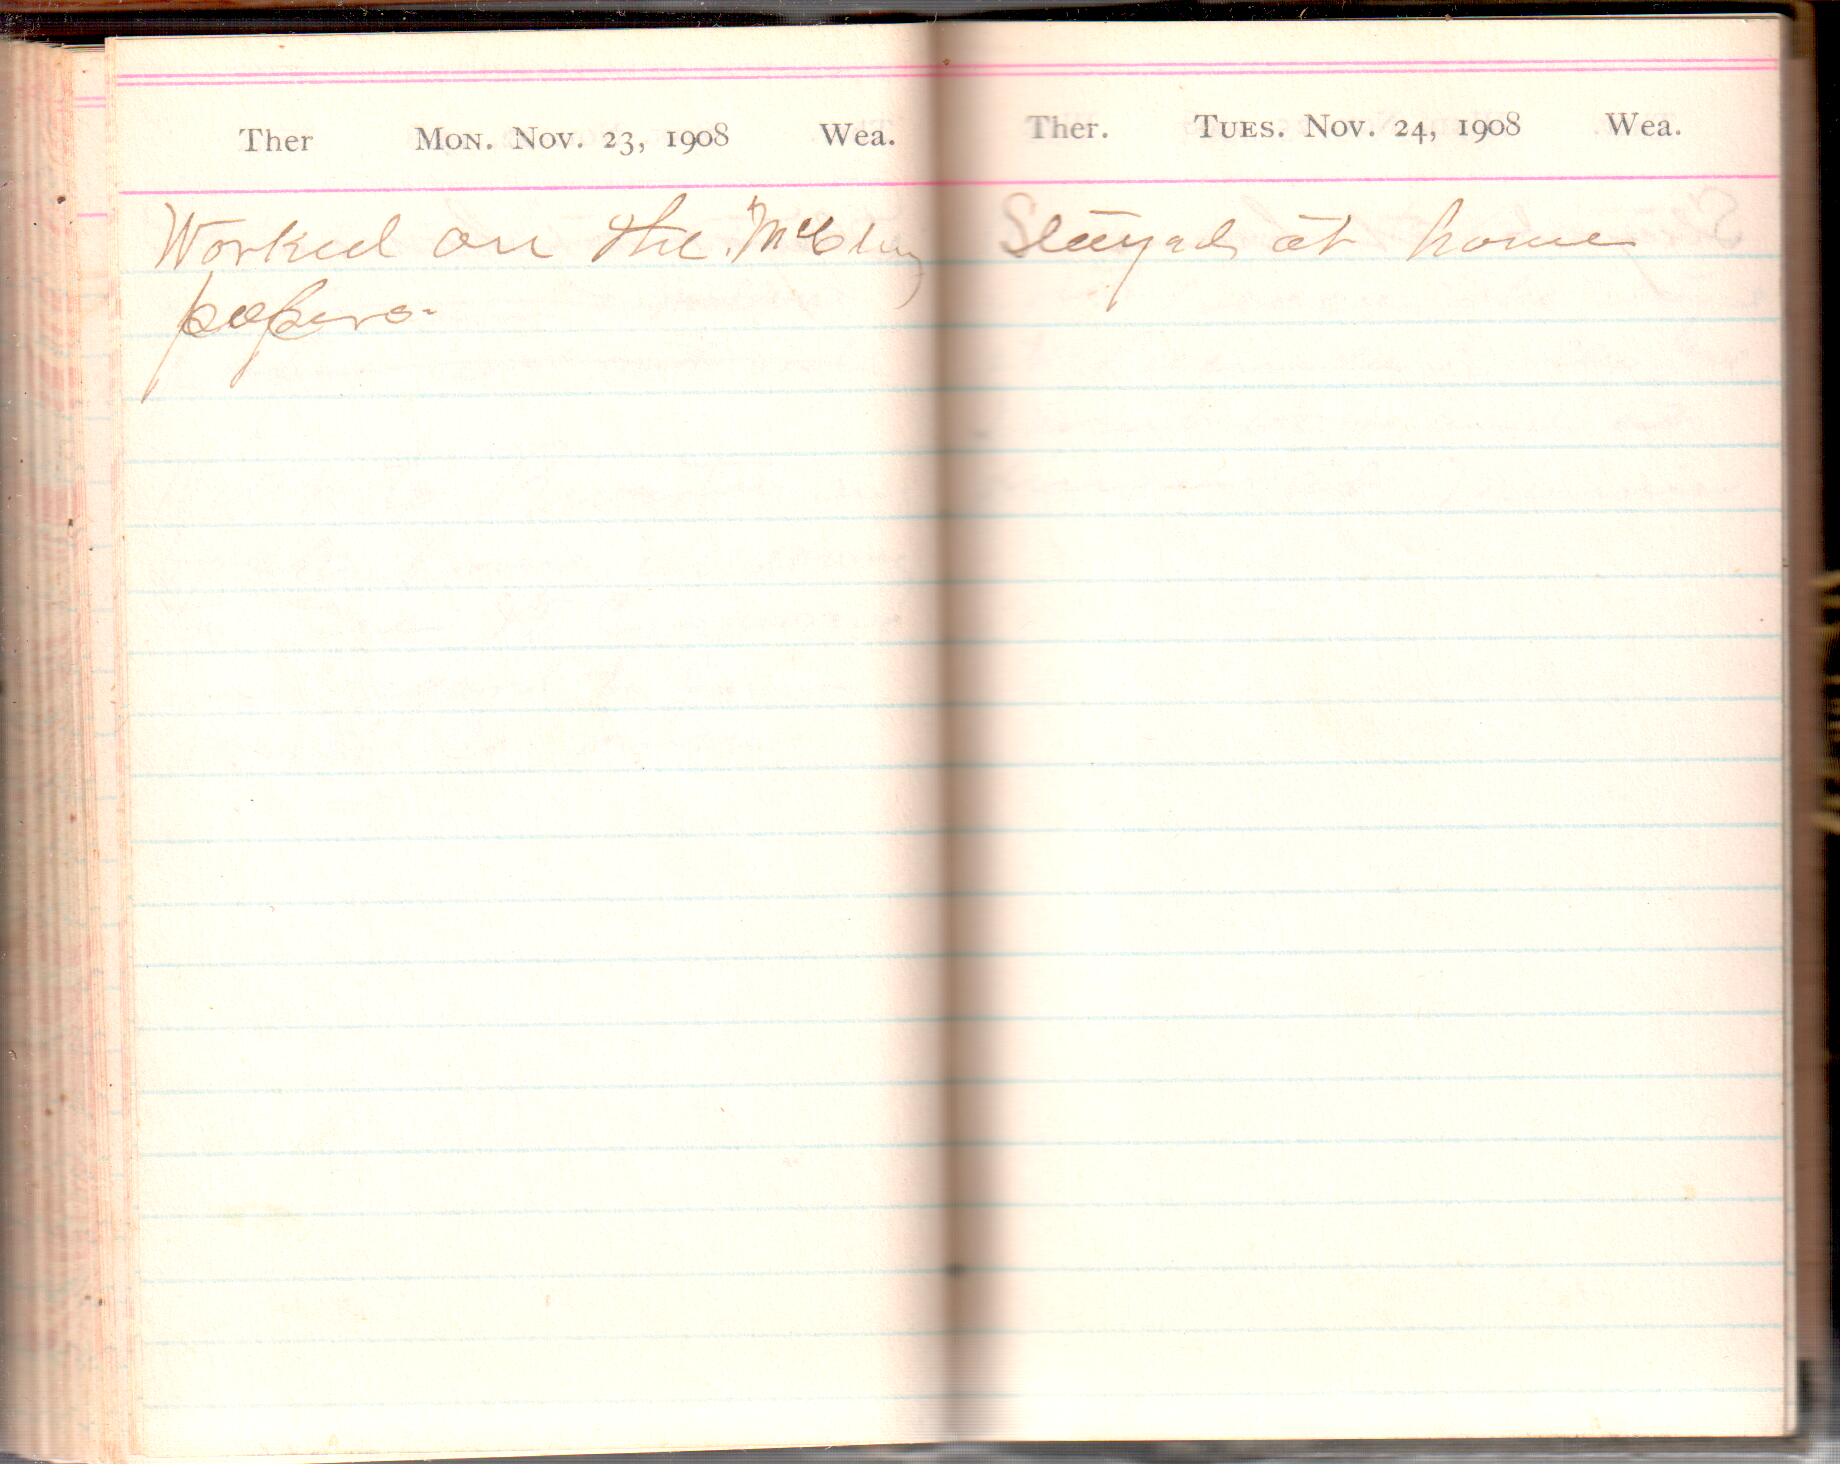 Ther Mon. Nov. 23, 1908 Wea.
Worked on the McClay
papers.
Ther. Tues. Nov. 24, 1908 Wea.
Stayed at home